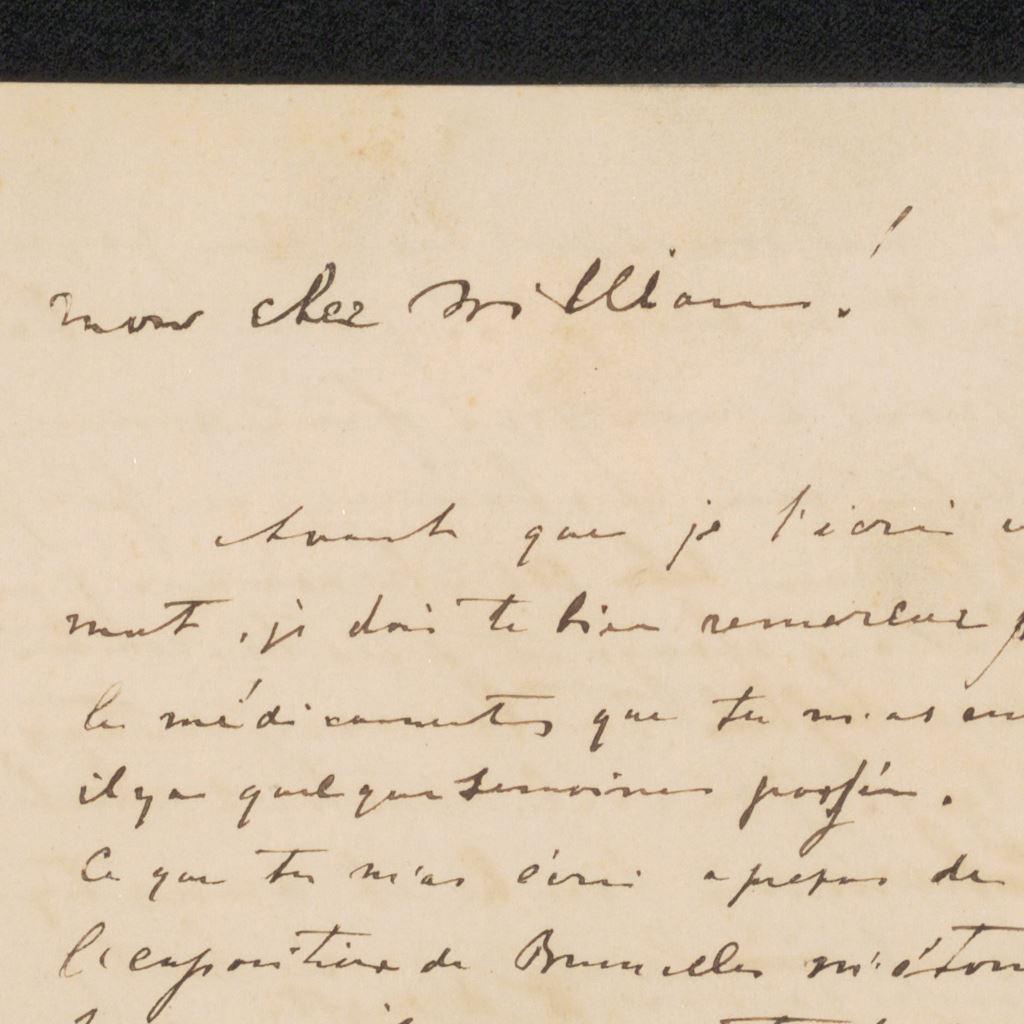 mon cher William!
Avant que je t'écri
mot, je dois te bien remercier
les médicamentes que tu m'as en
il y a quelque semaines passées.
Ce que tu m'as écri apropos de
l'exposition de Bruxelles m'éton